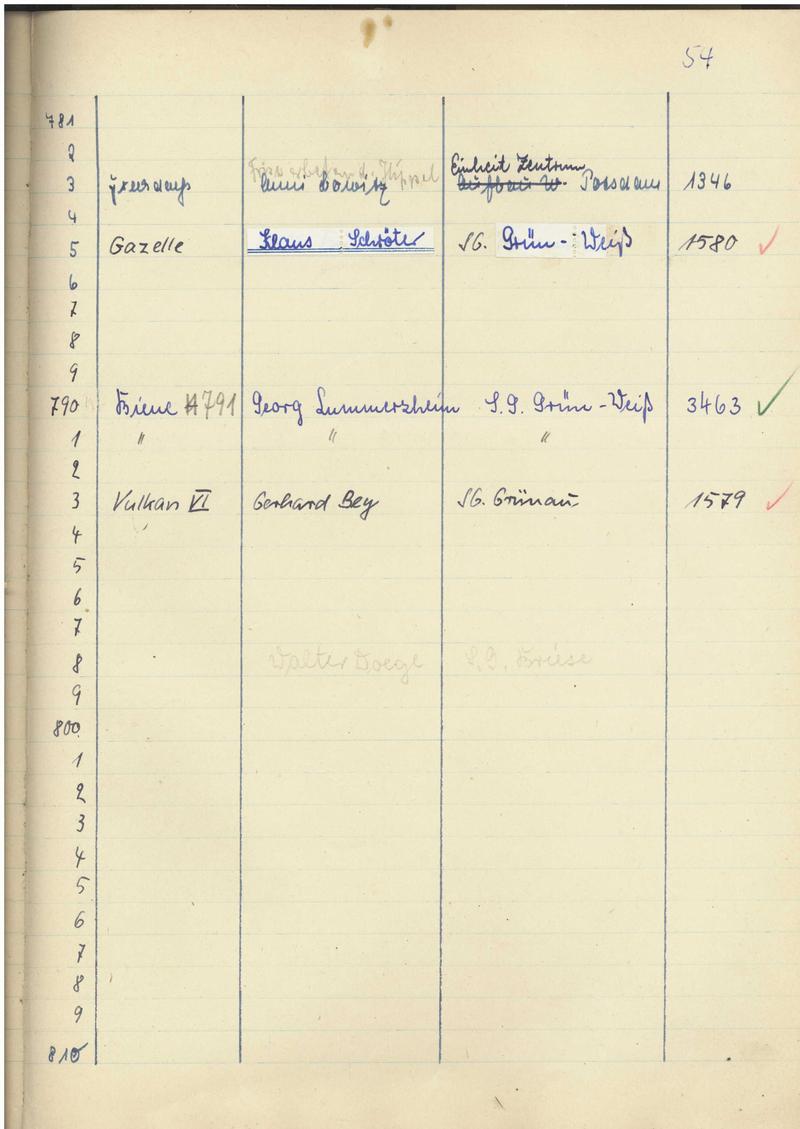 54
781
2
Einheit Zentrum
3 Potsdam 1346
4
5 Gazelle Klaus Schröter SG. Grün-Weiß 1580
6
7
8
9
790 Biene 791 Georg Lummerzheim S.G. Grün-Weiß 3463
1 " " "
2
3 Vulkan VI Gerhard Bey SG. Grünau 1579
4
5
6
7
8 Walter Doege S.G. Briese
9
800
1
2
3
4
5
6
7
8
9
810